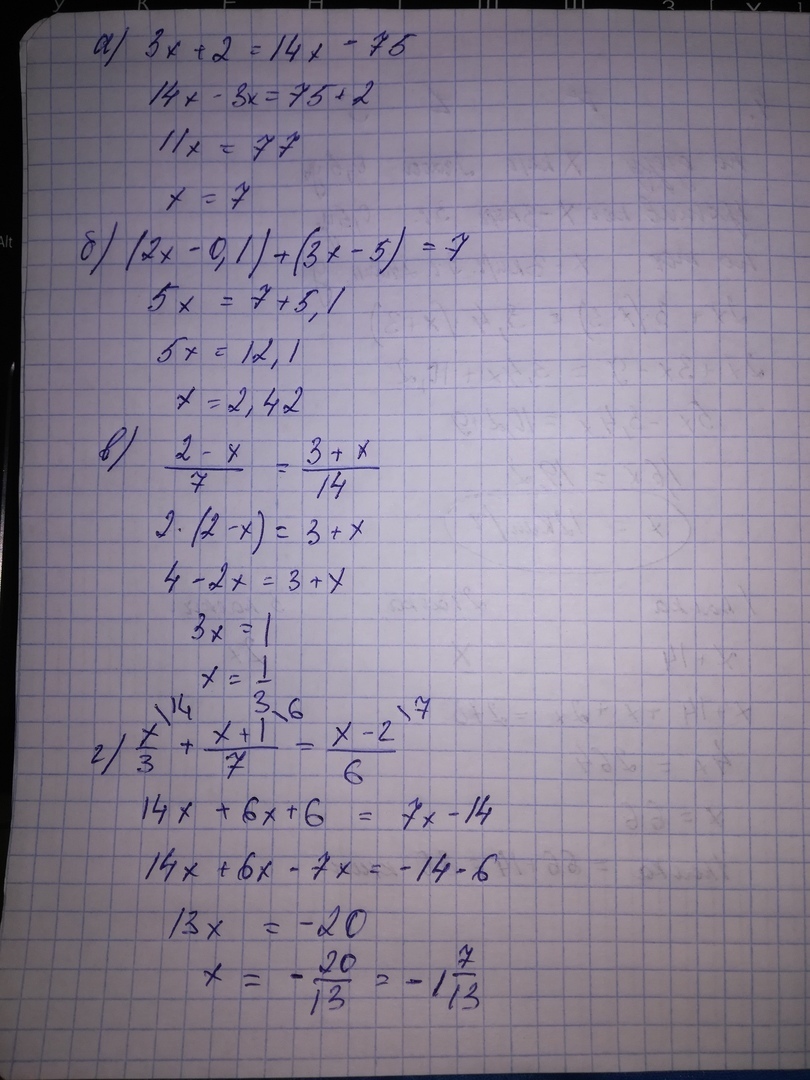 а) 3x + 2 = 14x - 75
14x - 3x = 75 + 2
11x = 77
x = 7
б) (2x - 0,1) + (3x - 5) = 7
5x = 7 + 5,1
5x = 12,1
x = 2,42
в) \frac{2 - x}{7} = \frac{3 + x}{14}
2 · (2 - x) = 3 + x
4 - 2x = 3 + x
3x = 1
x = \frac{1}{3}
г) \frac{x}{3}\14 + \frac{x + 1}{7}\6 = \frac{x - 2}{6}\7
14x + 6x + 6 = 7x - 14
14x + 6x - 7x = -14 - 6
13x = -20
x = -\frac{20}{13} = -1\frac{7}{13}